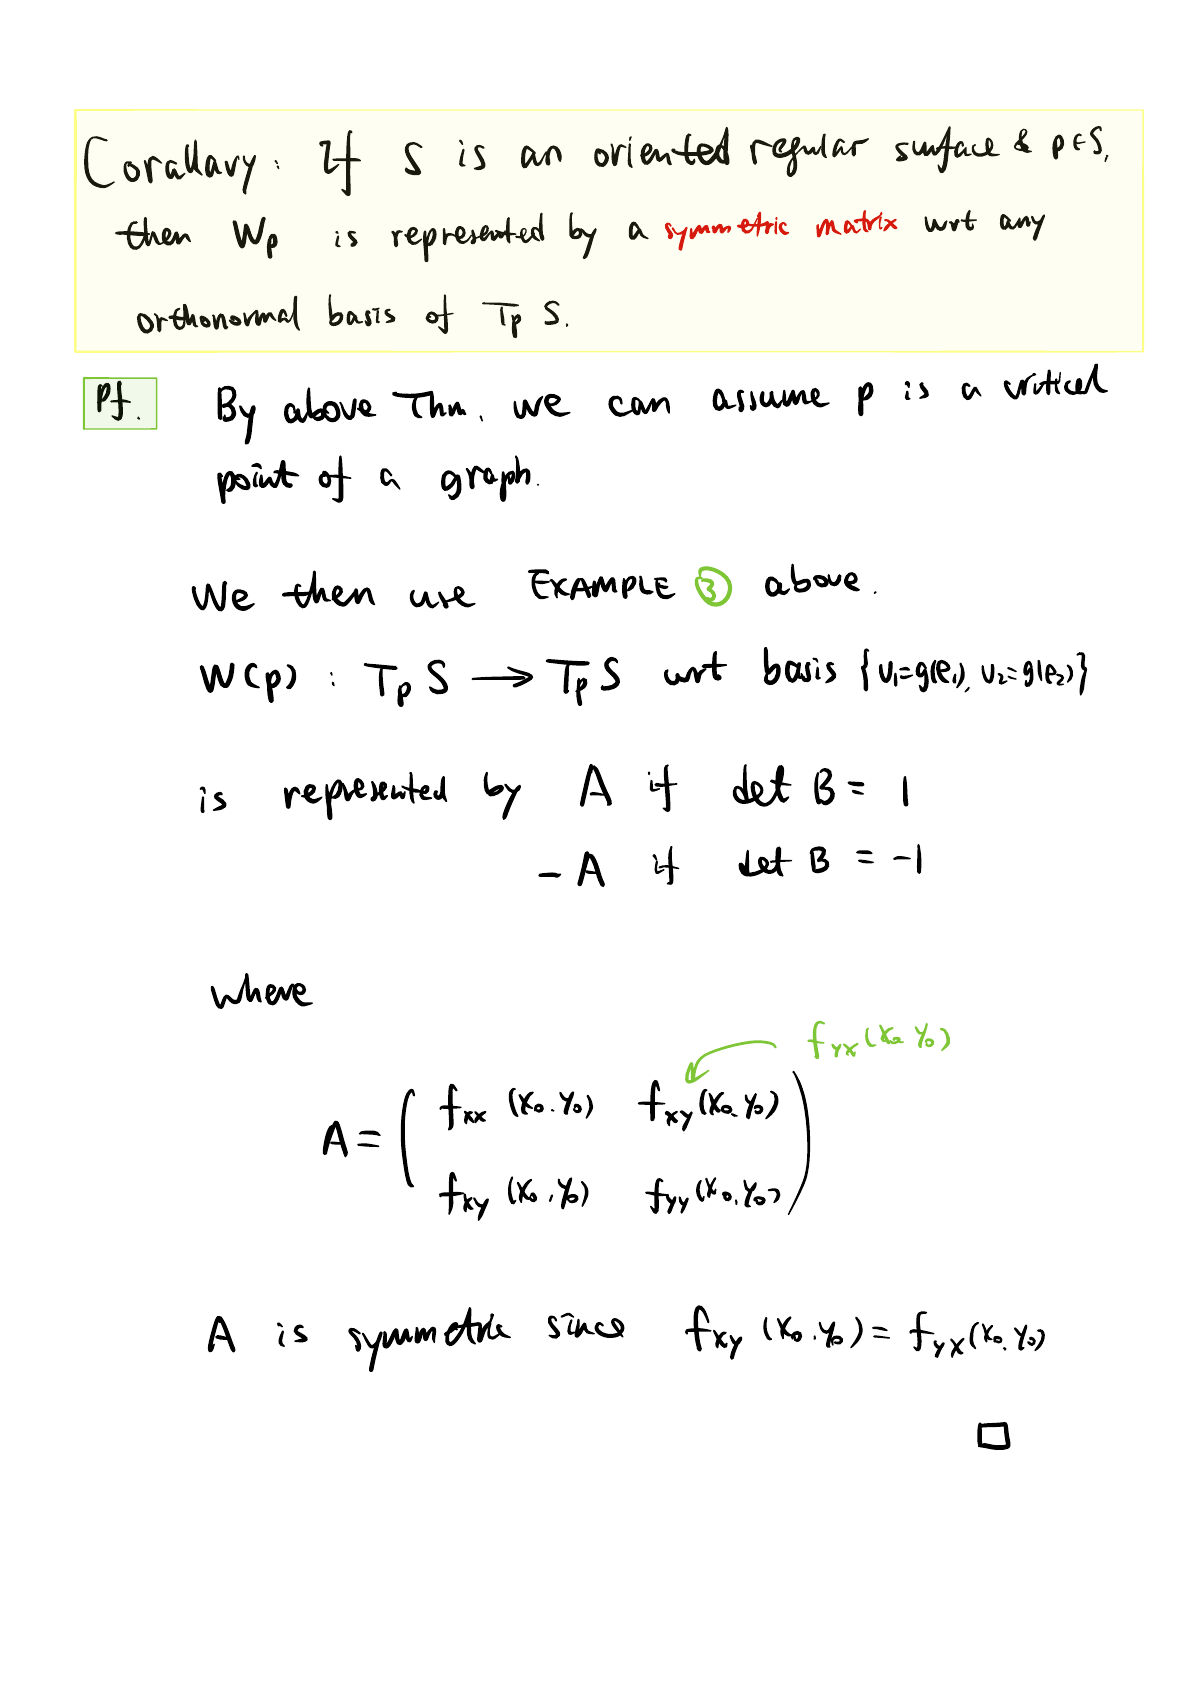 Corallary: If S is an oriented regular surface & p∈S,
then Wp is represented by a symmetric matrix wrt any
orthonormal basis of TpS.
Pf.
By above Thm, we can assume p is a critical
point of a graph.
We then use EXAMPLE ③ above.
W(p) : TpS → TpS wrt basis {v₁=g(e₁), v₂=g(e₂)}
is represented by A if det B = 1
-A if det B = -1
where
fyx(x₀,y₀)
A = ( fxx (x₀,y₀) fxy(x₀,y₀)
fxy (x₀,y₀) fyy(x₀,y₀) )
A is symmetric since fxy (x₀,y₀) = fyx(x₀,y₀)
□